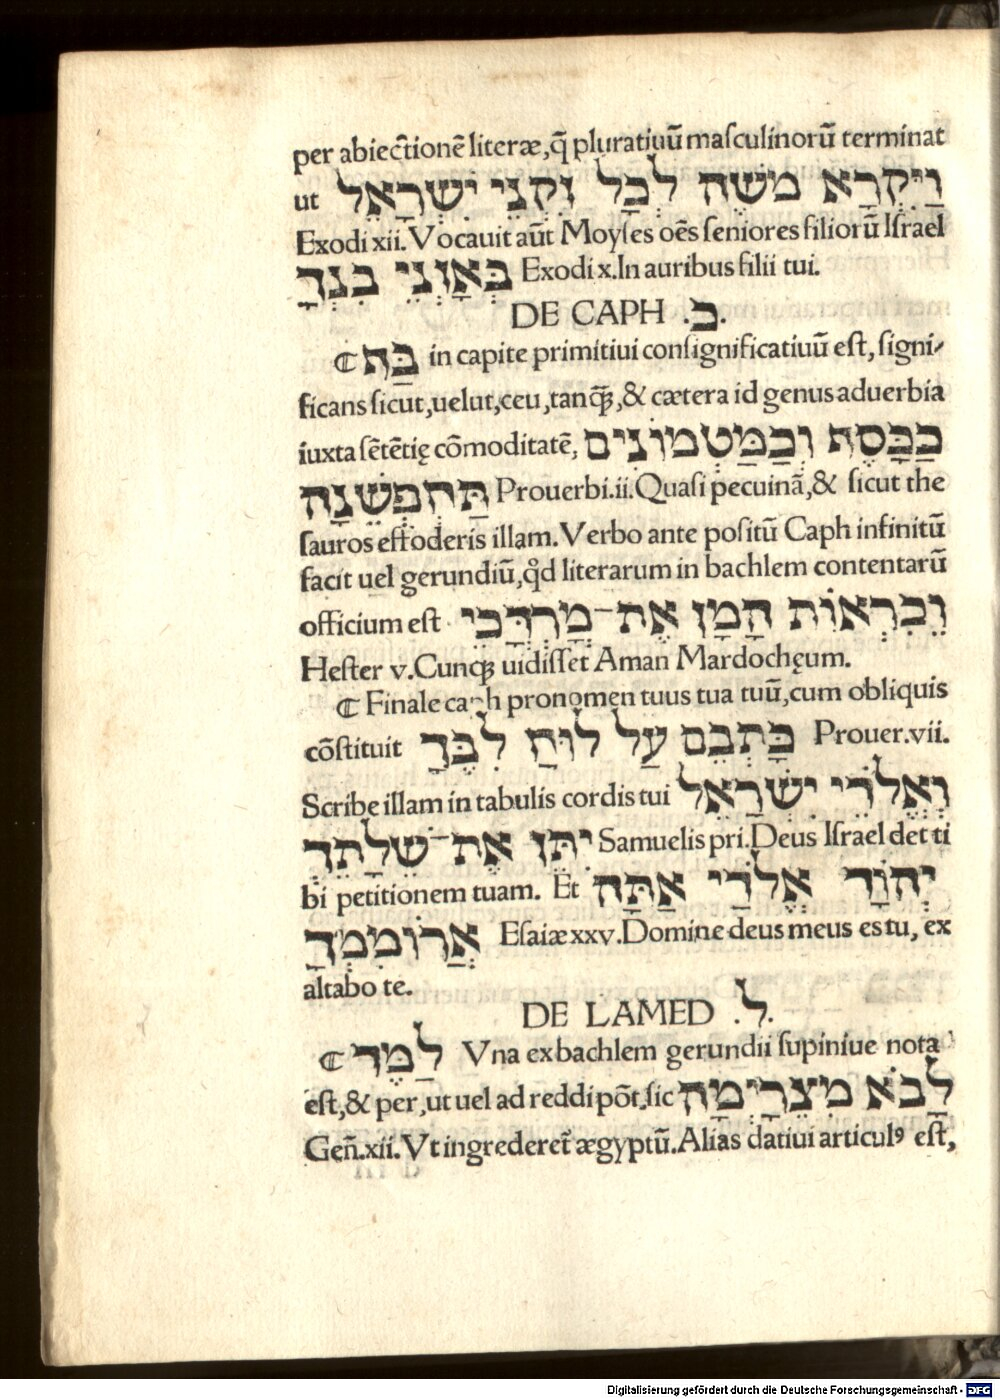 per abiectionē literæ, q̄ pluratiuū masculinorū terminat
ut וַיִּקְרָא מֹשֶׁה לְכָל זִקְנֵי יִשְׂרָאֵל
Exodi xii. Vocauit aūt Moyſes oēs ſeniores filiorū Iſrael
בְּאָזְנֵי בִנְךָ Exodi x. In auribus filii tui.
DE CAPH .כ.
¶ כַּף in capite primitiui conſignificatiuū eſt, ſigni-
ficans ſicut, uelut, ceu, tanq̄ꝫ, & cætera id genus aduerbia
iuxta ſētētię cōmoditatē, כַּכָּסֶף וְכַמַּטְמוֹנִים
תַּחְפְּשֶׂנָּה Prouerbi. ii. Quaſi pecuinā, & ſicut the
ſauros effoderis illam. Verbo ante poſitū Caph infinitū
facit uel gerundiū, qd̄ literarum in bachlem contentarū
officium eſt וְכִרְאוֹת הָמָן אֶת־מָרְדֳּכַי
Heſter v. Cunqꝫ uidiſſet Aman Mardochęum.
¶ Finale caph pronomen tuus tua tuū, cum obliquis
cōſtituit כָּתְבֵם עַל לוּחַ לִבֶּךָ Prouer. vii.
Scribe illam in tabulis cordis tui וֵאלֹהֵי יִשְׂרָאֵל
יִתֵּן אֶת־שֵׁלָתֵךְ Samuelis pri. Deus Iſrael det ti
bi petitionem tuam. Et יְהוָֹה אֱלֹהַי אַתָּה
אֲרוֹמִמְךָ Eſaiæ xxv. Domine deus meus es tu, ex
altabo te.
DE LAMED .ל.
¶ לַמֶּד Vna ex bachlem gerundii ſupiniue nota
eſt, & per, ut uel ad reddi pōt, ſic לָבֹא מִצְרָיְמָה
Geñ. xii. Vt ingrederet̄ ægyptū. Alias datiui articulꝰ eſt,
Digitalisierung gefördert durch die Deutsche Forschungsgemeinschaft - DFG